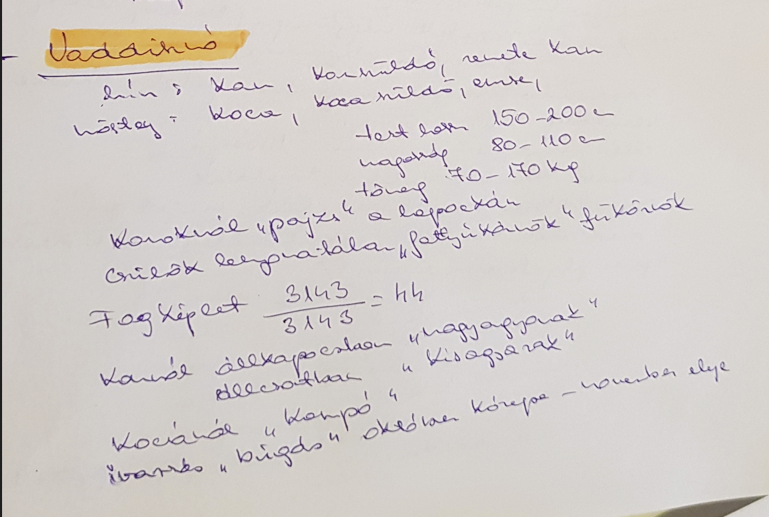 Vaddisznó
hím: Kan, Kansüldő, remete Kan
nőstény: Koca, Koca süldő, emse,
test hossz 150-200 cm
magasság 80-110 cm
tömeg 70-170 Kg
Kanoknál „pajzs" a lapockán
csülök lenyomatában „fattyúkörmök" fűkörmök
Fogképlet 3143/3143 = 44
Kannál állkapocsban „nagyagyarak"
állcsontban „Kisagyarak"
Kocánál „Kampó"
ivarzás „búgás" október közepe - november eleje